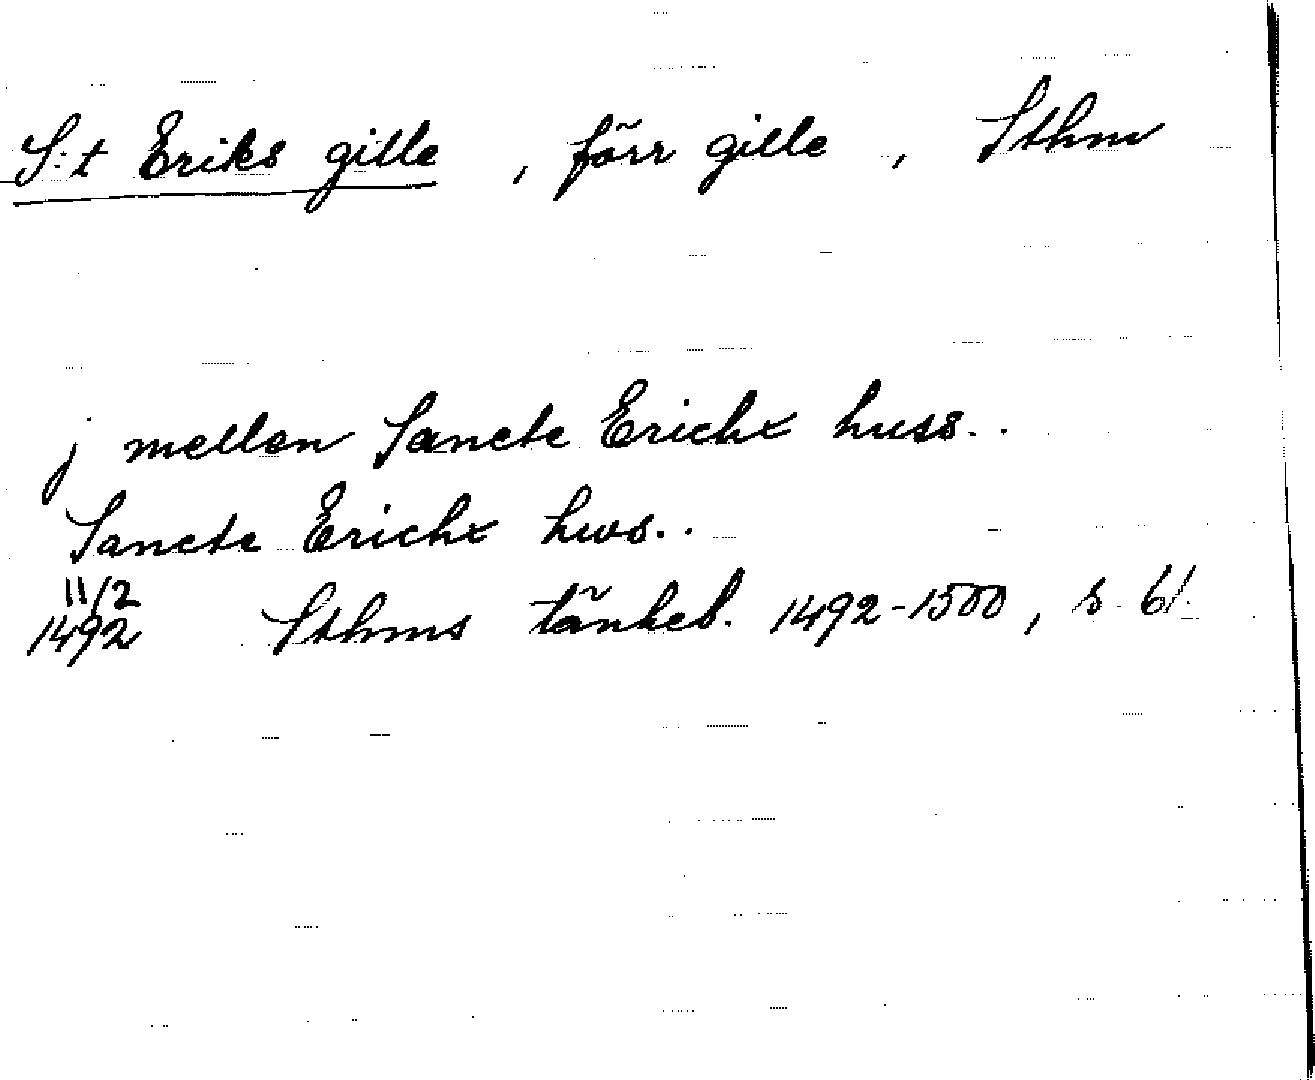 S:t Eriks gille, förr gille, Sthm
j mellan Sancte Erichx huss..
Sancte Erichx hws..
11/2
1492 Sthms tänkeb. 1492-1500, s 61.